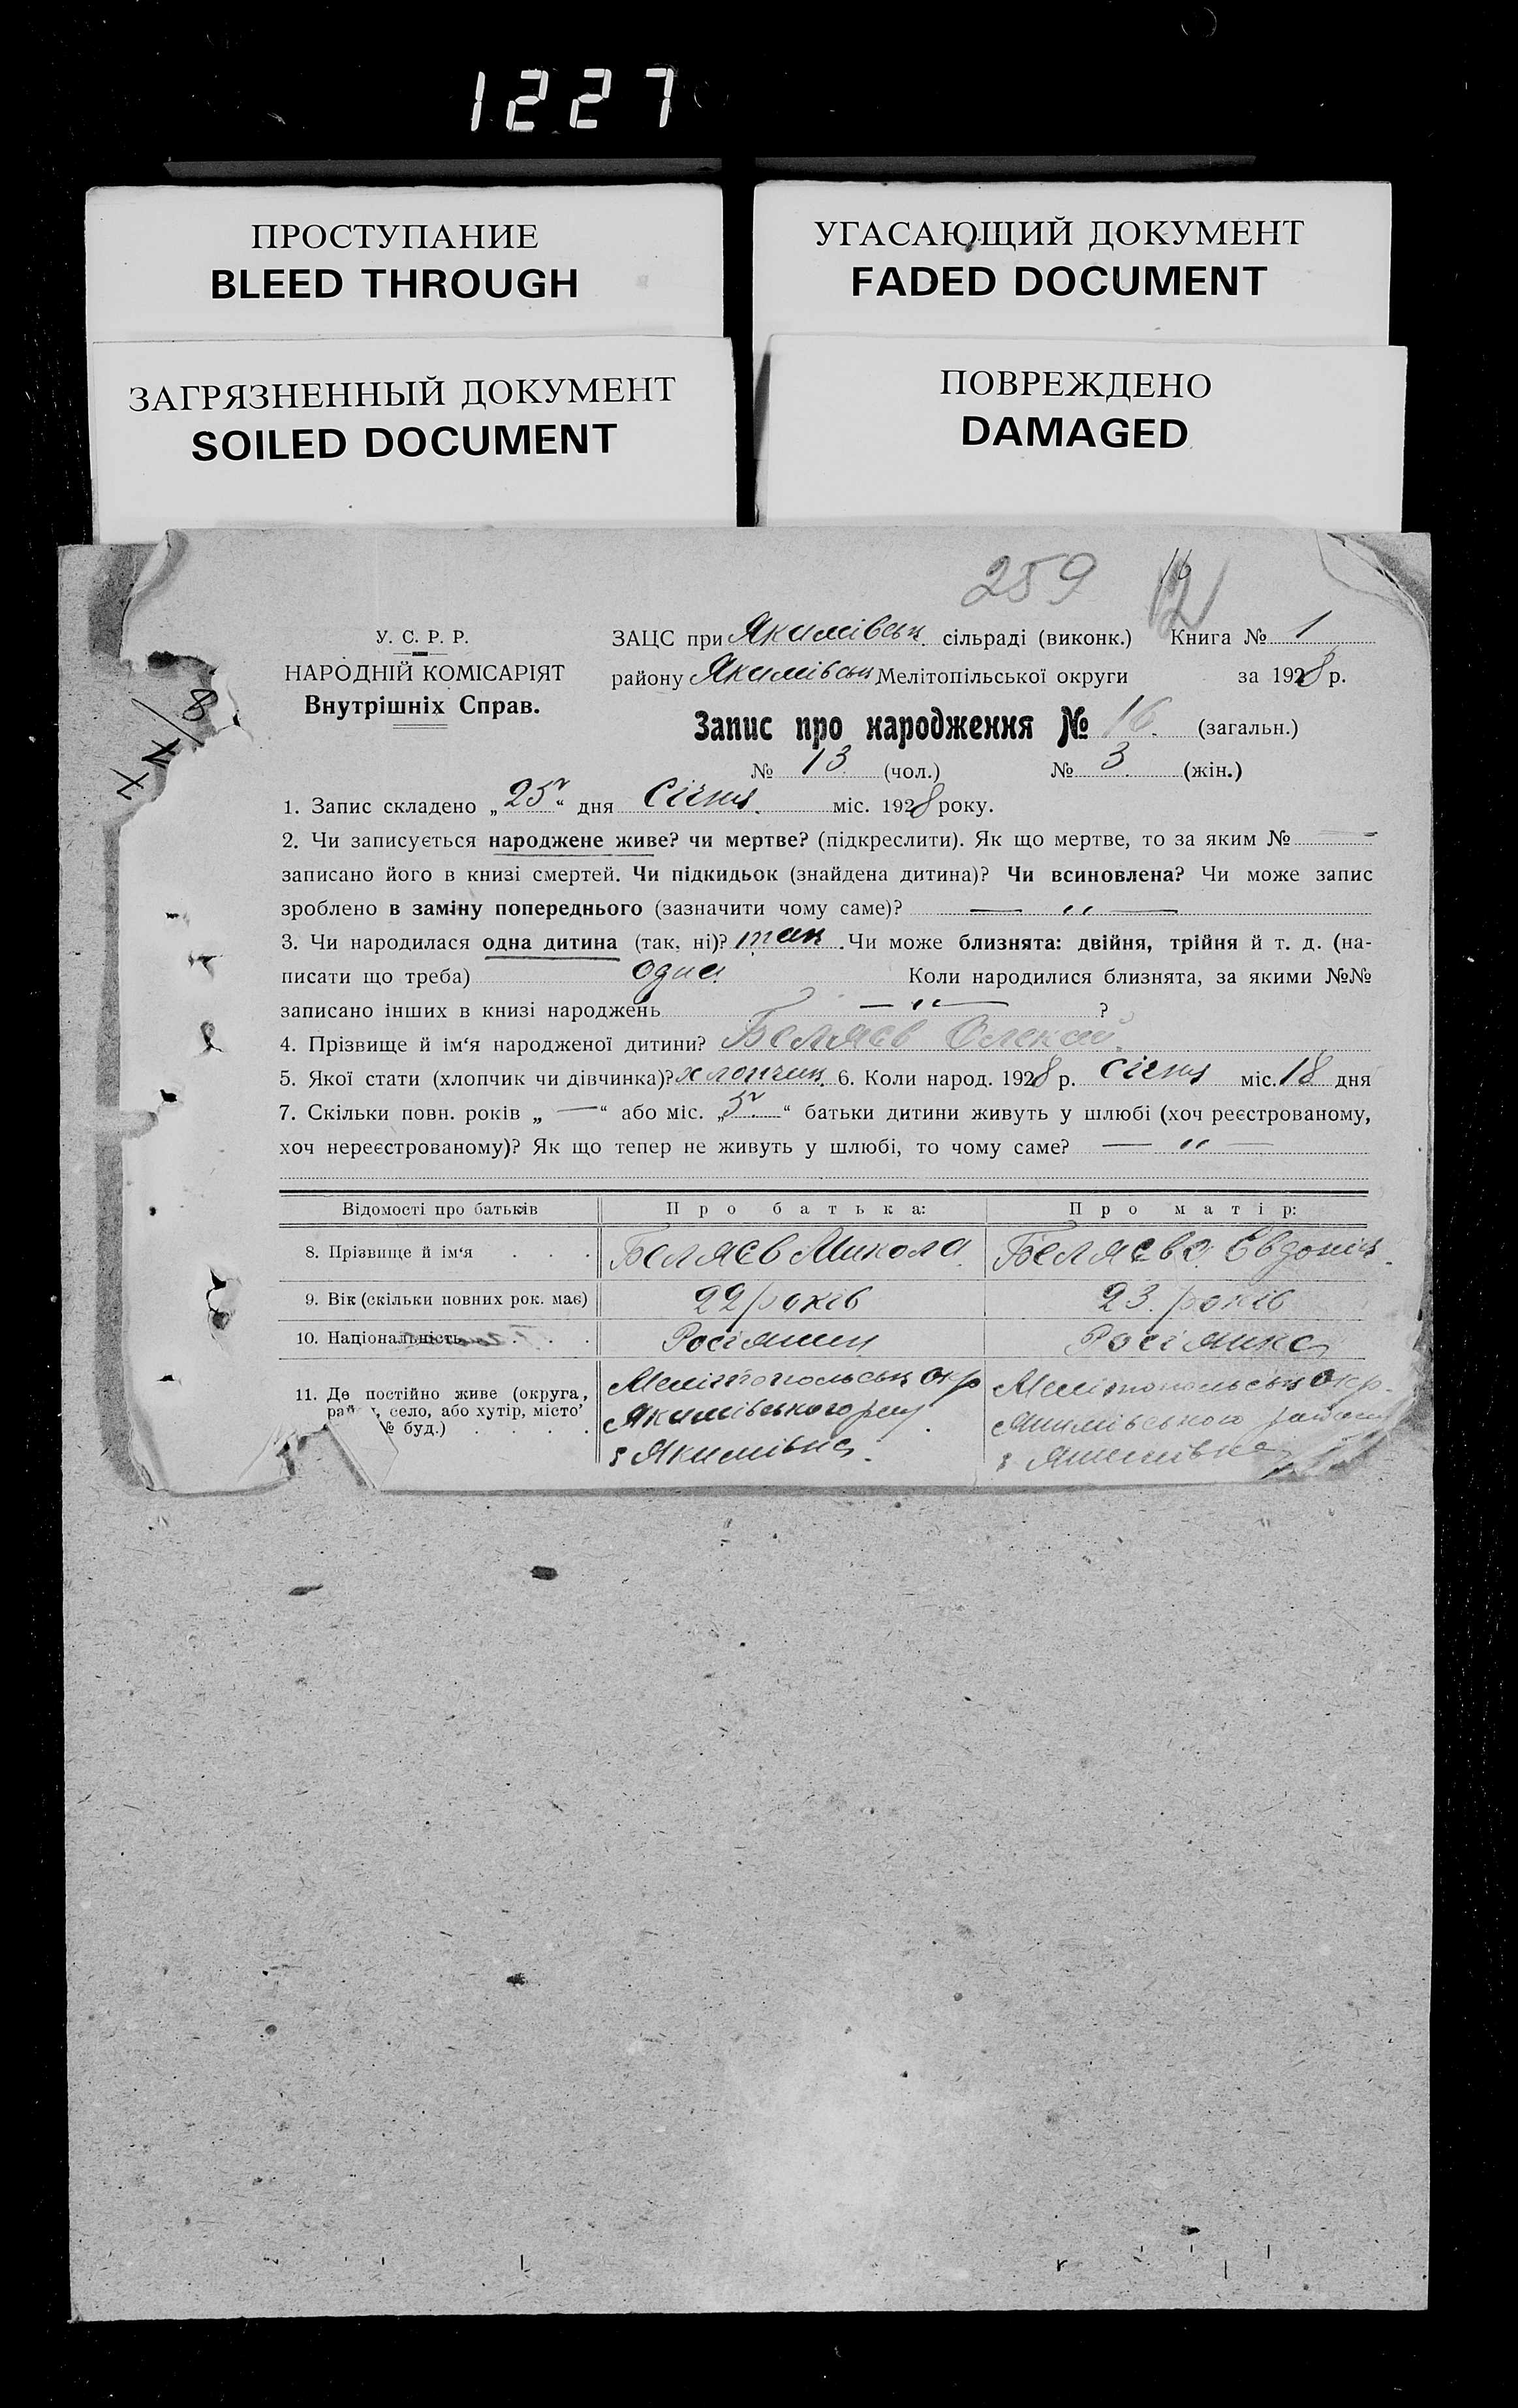 1227
ПРОСТУПАНИЕ
BLEED THROUGH
УГАСАЮЩИЙ ДОКУМЕНТ
FADED DOCUMENT
ЗАГРЯЗНЕННЫЙ ДОКУМЕНТ
SOILED DOCUMENT
ПОВРЕЖДЕНО
DAMAGED
259 16
У. С. Р. Р.
НАРОДНІЙ КОМІСАРІЯТ
Внутрішніх Справ.
ЗАЦС при Якимівськ. сільраді (виконк.) Книга № 1
району Якимівськ Мелітопільської округи за 1928 р.
Запис про народження № 16. (загальн.)
№ 13 (чол.) № 3. (жін.)
1. Запис складено „25“ дня Січня. міс. 1928 року.
2. Чи записується народжене живе? чи мертве? (підкреслити). Як що мертве, то за яким № —
записано його в книзі смертей. Чи підкидьок (знайдена дитина)? Чи всиновлена? Чи може запис
зроблено в заміну попереднього (зазначити чому саме)? — „ —
3. Чи народилася одна дитина (так, ні)? так. Чи може близнята: двійня, трійня й т. д. (на-
писати що треба) одна. Коли народилися близнята, за якими №№
записано інших в книзі народжень — „ — ?
4. Прізвище й ім‘я народженої дитини? Беляєв Олексій.
5. Якої стати (хлопчик чи дівчинка)? хлопчик. 6. Коли народ. 1928 р. Січня міс. 18 дня
7. Скільки повн. років „ — “ або міс. „5“ батьки дитини живуть у шлюбі (хоч реєстрованому,
хоч нереєстрованому)? Як що тепер не живуть у шлюбі, то чому саме? — „ —
Відомості про батьків Про батька: Про матір:
8. Прізвище й ім‘я . . . Беляєв Микола. Беляєва Євдокія.
9. Вік (скільки повних рок. має) 22 років 23. років
10. Національність . . . Росіянин Росіянка
11. Де постійно живе (округа, Мелітопольськ Окр Мелітопольськ Окр.
село, або хутір, місто Якимівського рай. Якимівського району
№ буд.) . . . . с Якимівка. с Якимівка